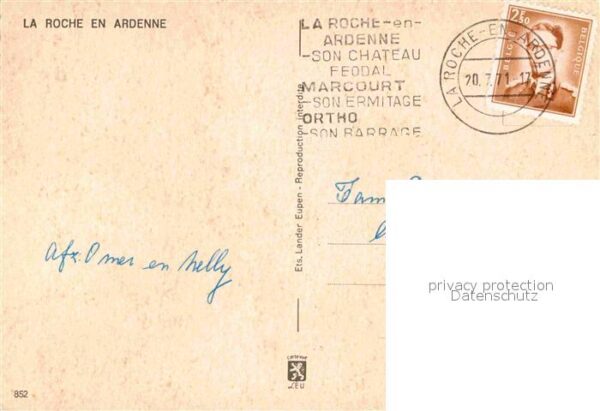 LA ROCHE EN ARDENNE
LA ROCHE-en-
ARDENNE
-SON CHATEAU
FEODAL
MARCOURT
-SON ERMITAGE
ORTHO
-SON BARRAGE
LA ROCHE-EN-ARDENNE
20.7.71-17
2F50
BELGIE-BELGIQUE
Ets. Lander Eupen - Reproduction interdite
Fam.
Afz. Omer en Nelly
privacy protection
Datenschutz
LEU
852